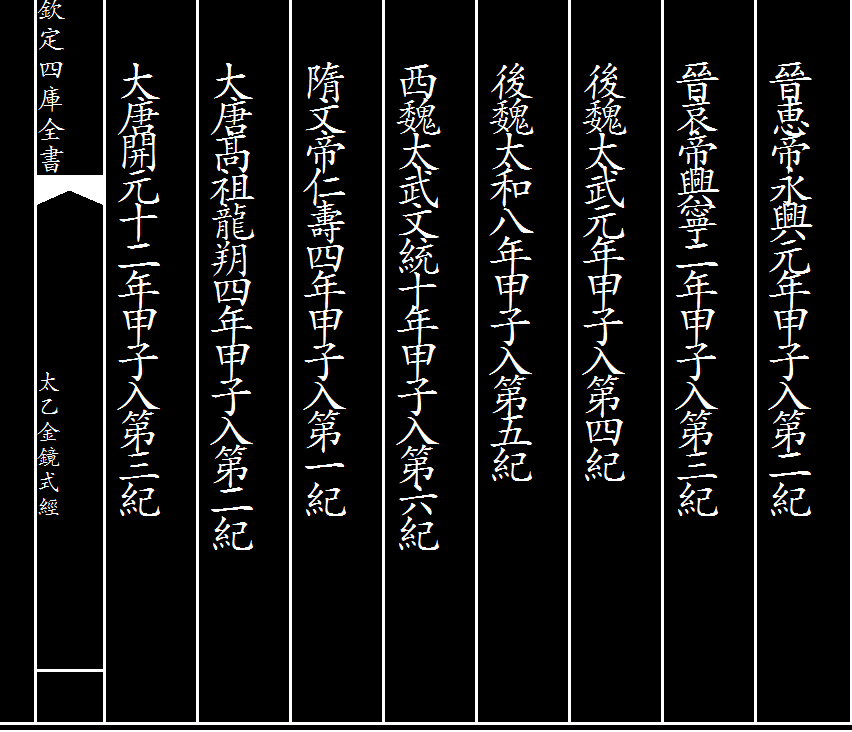 晉惠帝永興元年甲子入第二紀
晉哀帝興寧二年甲子入第三紀
後魏太武元年甲子入第四紀
後魏太和八年甲子入第五紀
西魏太武文統十年甲子入第六紀
隋文帝仁壽四年甲子入第一紀
大唐髙祖龍朔四年甲子入第二紀
大唐開元十二年甲子入第三紀
欽定四庫全書
太乙金鏡式經